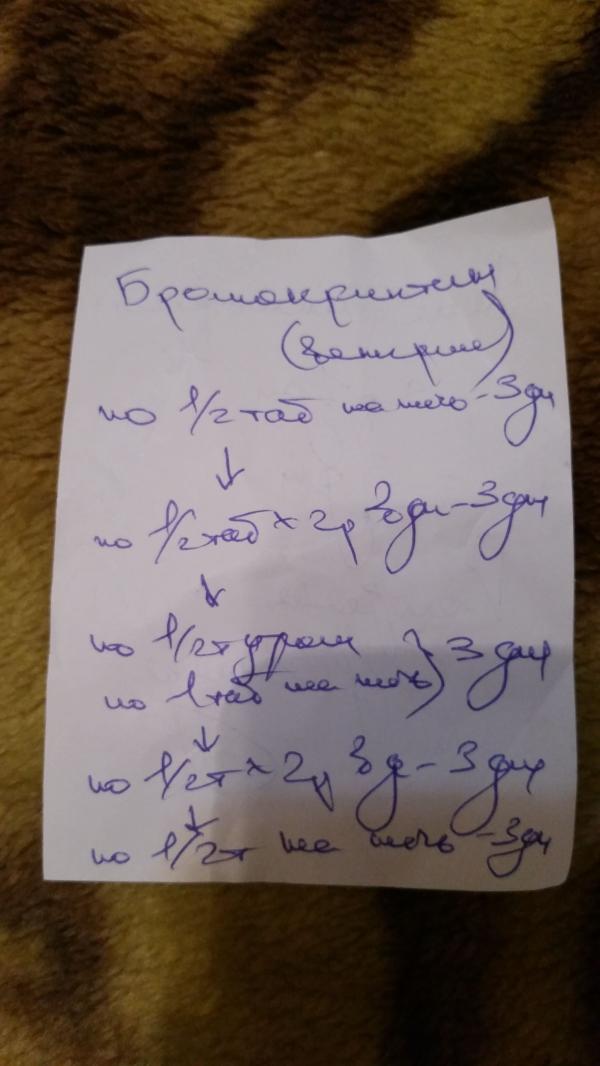 Бромокриптин
(Венгрия)
по 1/2 таб на ночь - 3 дн
↓
по 1/2 таб × 2 р в дн - 3 дня
↓
по 1/2 т утром
по 1 таб на ночь } 3 дня
↓
по 1/2 т × 2 р в д - 3 дня
↓
по 1/2 т на ночь - 3 дн